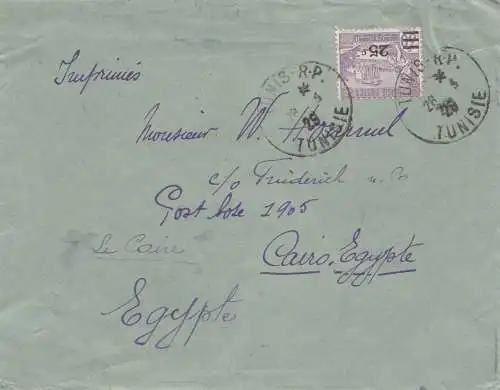 Imprimés
25c
TUNIS-R.P.
29
TUNISIE
TUNIS-R.P.
26 29
TUNISIE
Monsieur W.
c/o Friederich
Post boxe 1905
Le Caire
Cairo, Egypte
Egypte